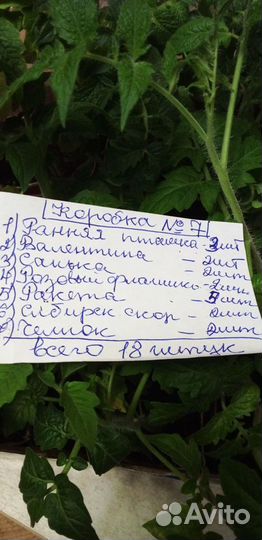 Коробка № 7
1) Ранняя пташка - 3 шт
2) Валентина - 2 шт
3) Санька - 2 шт
4) Розовый фламинго - 2 шт
5) Ракета - 3 шт
6) Сибирск скор - 2 шт
7) Челнок - 2 шт
всего 18 штук
Avito